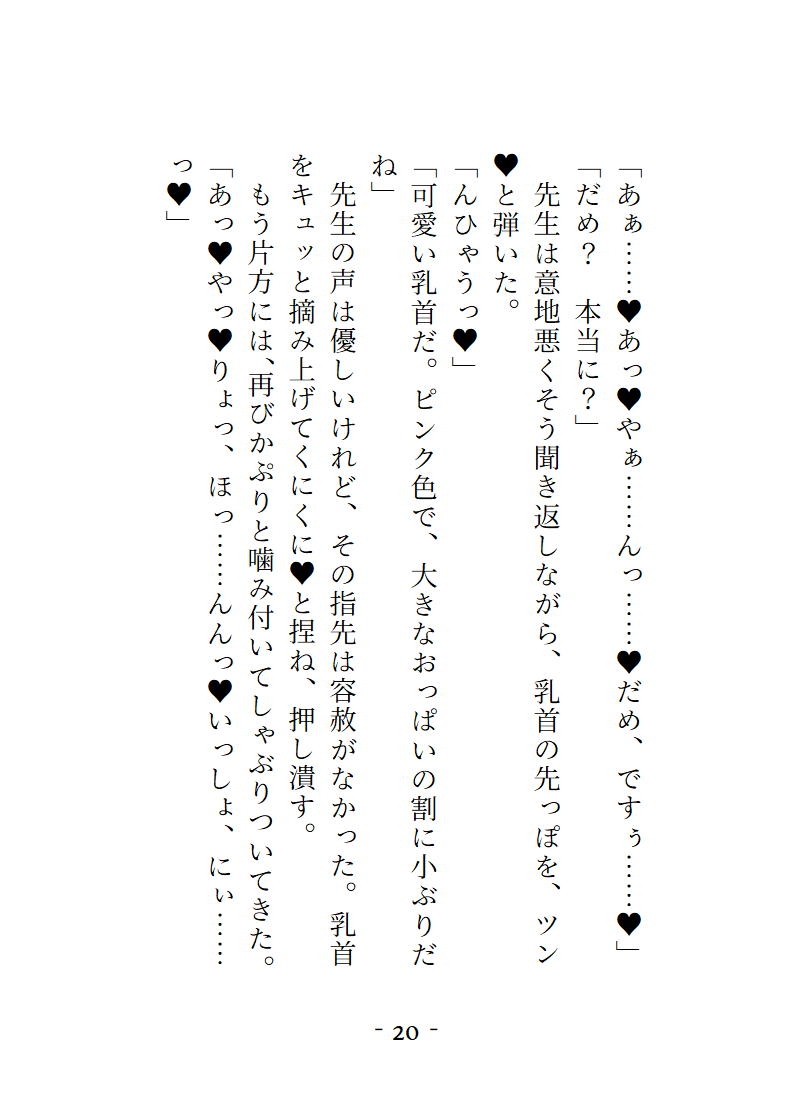 「あぁ……♥あっ♥やぁ……んっ……♥だめ、ですぅ……♥」
「だめ？　本当に？」
　先生は意地悪くそう聞き返しながら、乳首の先っぽを、ツン
♥と弾いた。
「んひゃうっ♥」
「可愛い乳首だ。ピンク色で、大きなおっぱいの割に小ぶりだ
ね」
　先生の声は優しいけれど、その指先は容赦がなかった。乳首
をキュッと摘み上げてくにくに♥と捏ね、押し潰す。
　もう片方には、再びかぷりと噛み付いてしゃぶりついてきた。
「あっ♥やっ♥りょっ、ほっ……んんっ♥いっしょ、にぃ……
っ♥」
- 20 -